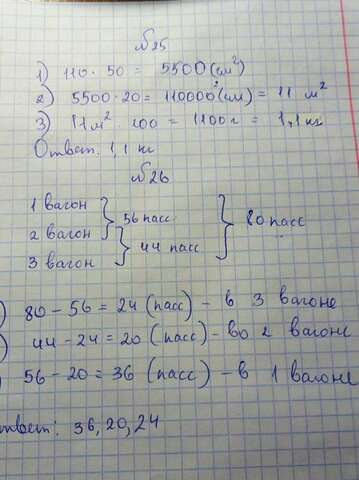 №25
1) 110 · 50 = 5500 (см²)
2) 5500 · 20 = 110000 (см²) = 11 м²
3) 11 м² · 100 = 1100 г = 1,1 кг
Ответ: 1,1 кг
№26
1 вагон } 56 пасс } 80 пасс
2 вагон } 44 пасс
3 вагон
) 80 - 56 = 24 (пасс) - в 3 вагоне
) 44 - 24 = 20 (пасс) - во 2 вагоне
56 - 20 = 36 (пасс) - в 1 вагоне
твет: 36, 20, 24